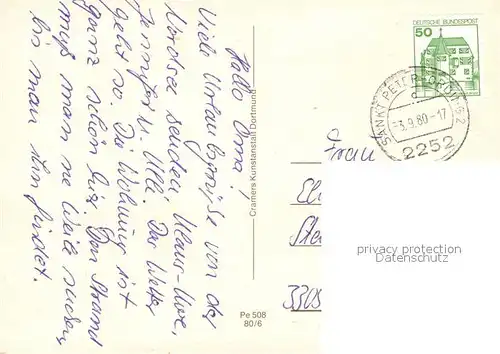 Hallo Oma!
Viele Urlaubsgrüße von der
Nordsee senden, Klaus-Uwe,
Jennifer u. Ulli. Das Wetter
geht so. Die Wohnung ist
ganz schön. Den Strand
muß man ne Weile suchen
bis man ihn findet.
Cramers Kunstanstalt Dortmund
Pe 508
80/6
DEUTSCHE BUNDESPOST
50
SANKT PETER-ORDING 2
-3.9.80-17
2252
Frau
privacy protection
Datenschutz
3305